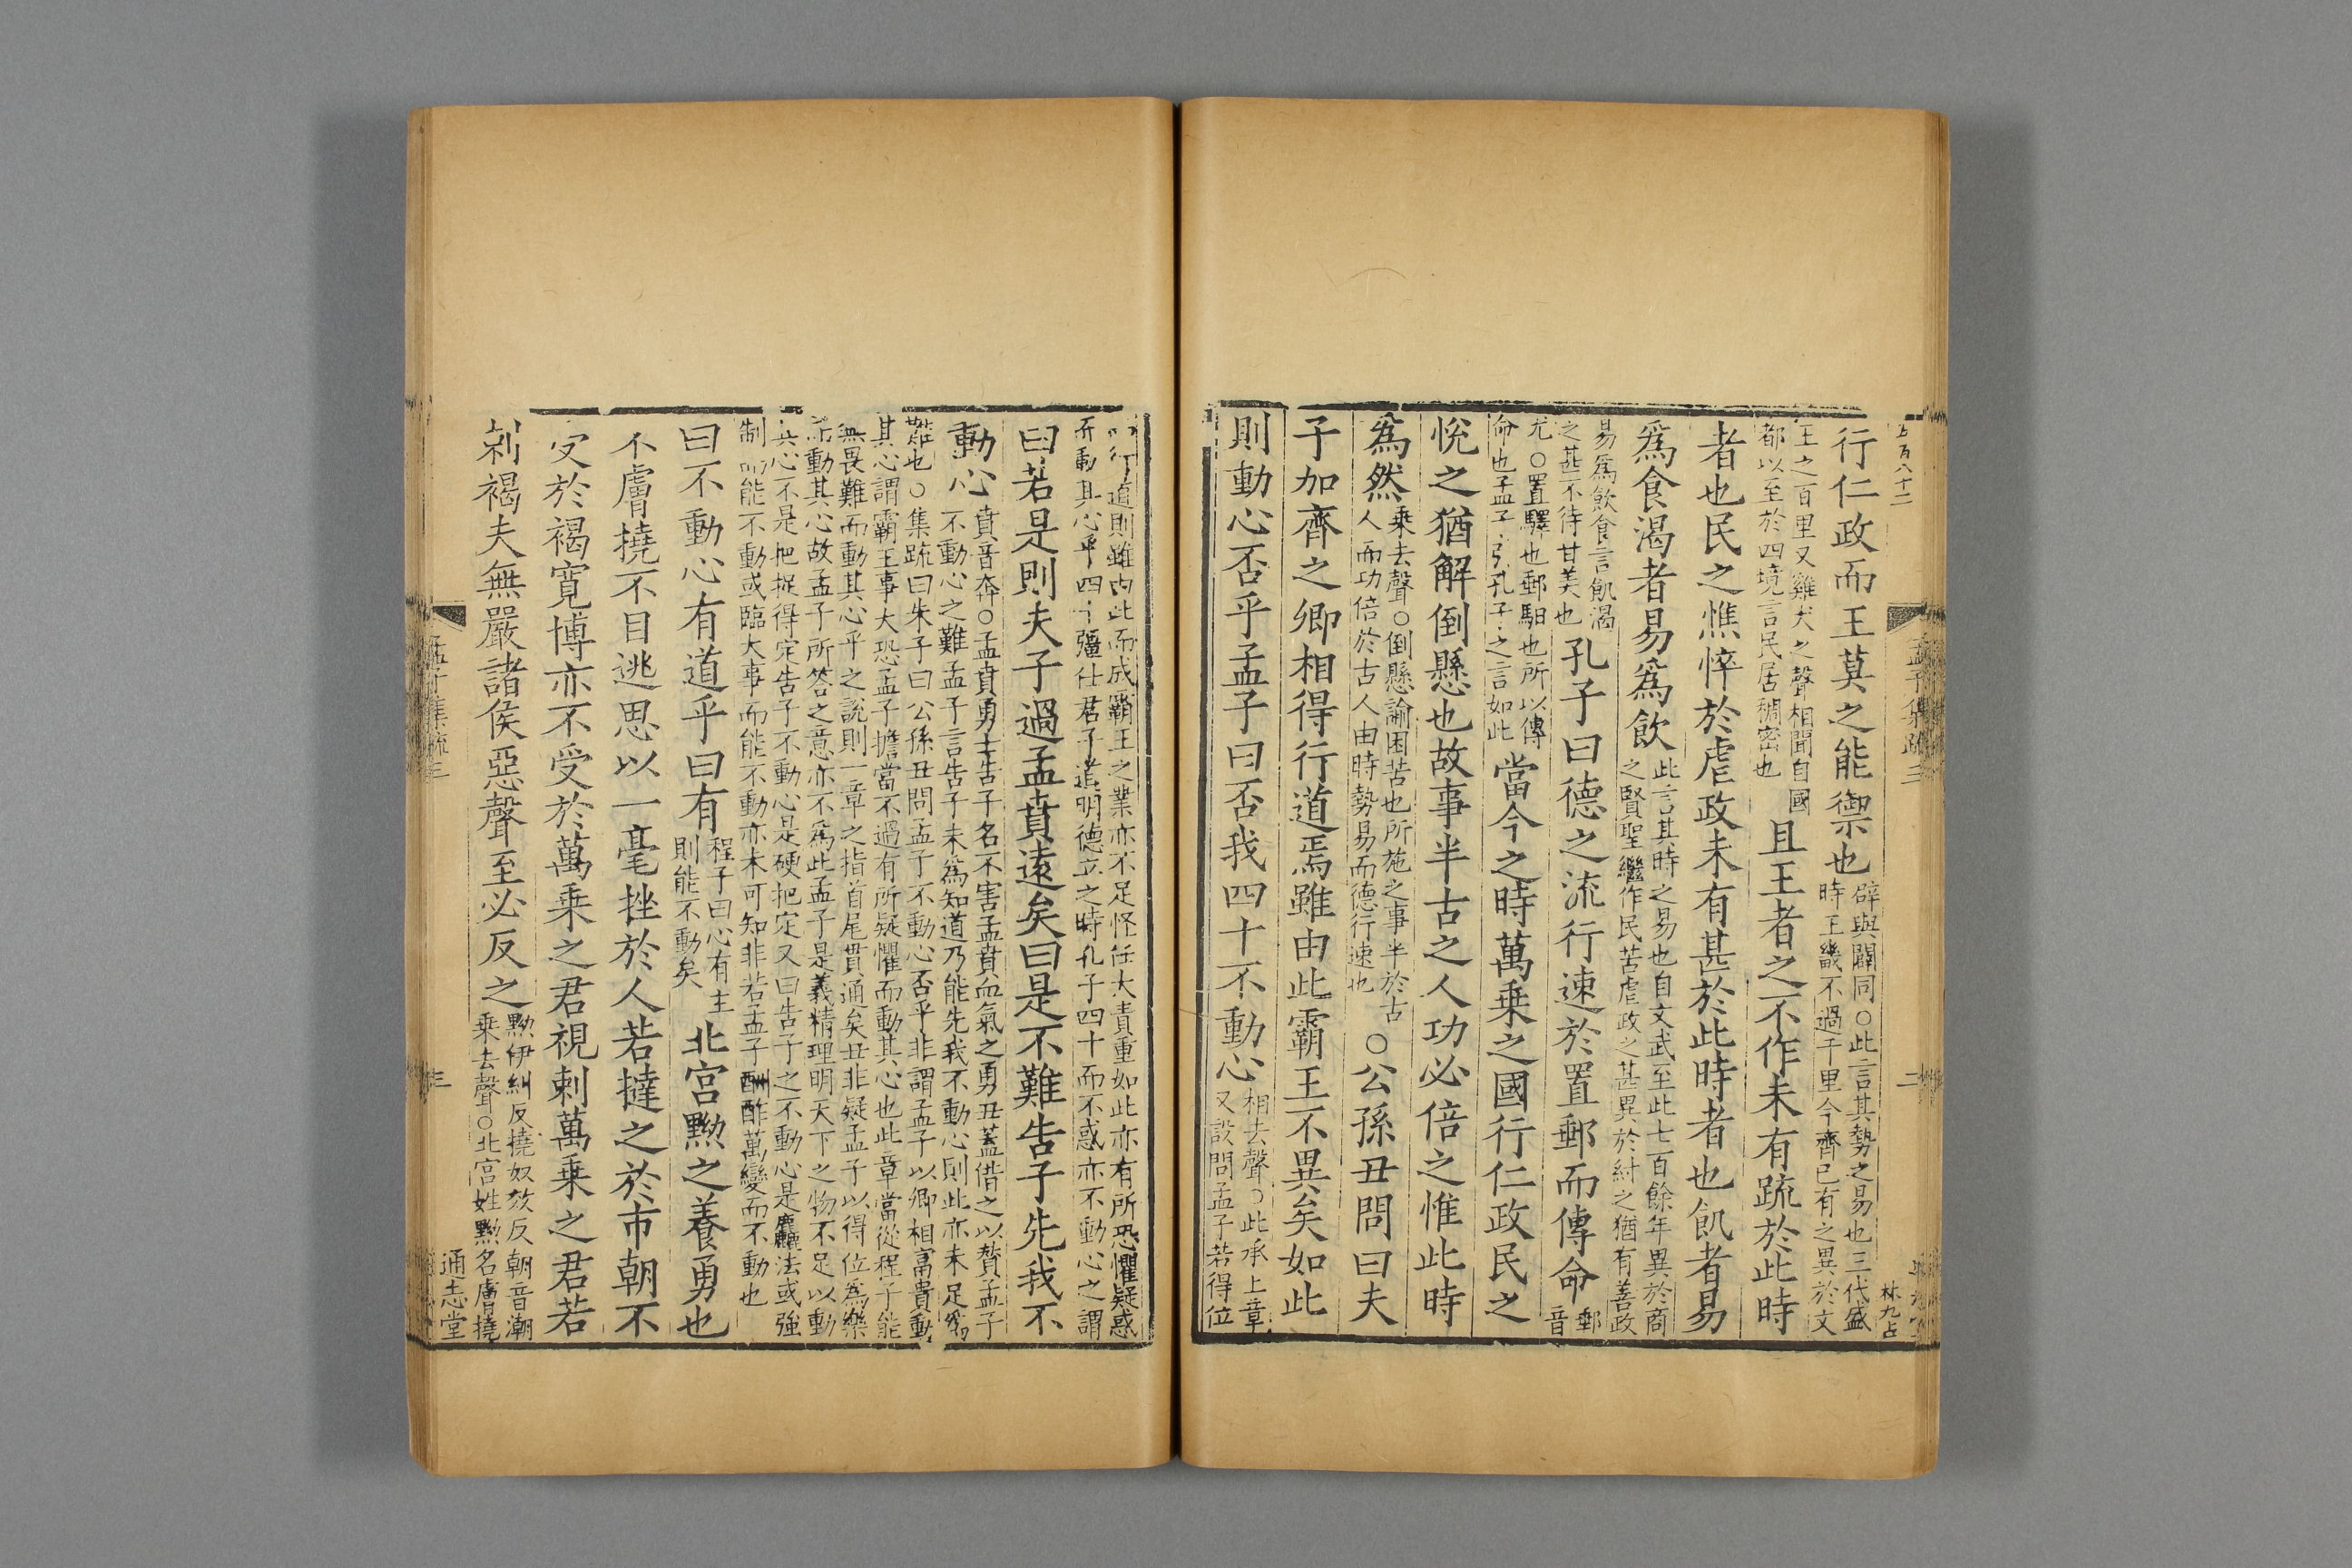 行仁政而王莫之能禦也
辟與闢同○此言其勢之易也三代盛
時王畿不過千里今齊已有之異於文
王之百里又雞犬之聲相聞自國
都以至於四境言民居稠密也
且王者之不作未有疏於此時
者也民之憔悴於虐政未有甚於此時者也飢者易
爲食渴者易爲飲
此言其時之易也自文武至此七百餘年異於商
之賢聖繼作民苦虐政之甚異於紂之猶有善政
易爲飲食言飢渴
之甚不待甘美也
孔子曰德之流行速於置郵而傳命
郵
音
尤○置驛也郵馹也所以傳
命也孟子引孔子之言如此
當今之時萬乘之國行仁政民之
悅之猶解倒懸也故事半古之人功必倍之惟此時
爲然
乘去聲○倒懸諭困苦也所施之事半於古
人而功倍於古人由時勢易而德行速也
○公孫丑問曰夫
子加齊之卿相得行道焉雖由此霸王不異矣如此
則動心否乎孟子曰否我四十不動心
相去聲○此承上章
又設問孟子若得位
行道則雖由此而成霸王之業亦不足怪任大責重如此亦有所恐懼疑惑
而動其心乎四十彊仕君子道明德立之時孔子四十而不惑亦不動心之謂
曰若是則夫子過孟賁遠矣曰是不難告子先我不
動心
賁音奔○孟賁勇士告子名不害孟賁血氣之勇丑蓋借之以贊孟子
不動心之難孟子言告子未爲知道乃能先我不動心則此亦未足爲
難也○集疏曰朱子曰公孫丑問孟子不動心否乎非謂孟子以卿相富貴動
其心謂霸王事大恐孟子擔當不過有所疑懼而動其心也此章當從程子能
無畏難而動其心乎之說則一章之指首尾貫通矣丑非疑孟子以得位爲樂
而動其心故孟子所答之意亦不爲此孟子是義精理明天下之物不足以動
其心不是把捉得定告子不動心是硬把定又曰告子之不動心是麤法或強
制而能不動或臨大事而能不動亦未可知非若孟子酬酢萬變而不動也
曰不動心有道乎曰有
程子曰心有主
則能不動矣
北宮黝之養勇也
不膚撓不目逃思以一毫挫於人若撻之於市朝不
受於褐寬博亦不受於萬乘之君視刺萬乘之君若
刺褐夫無嚴諸侯惡聲至必反之
黝伊糾反撓奴效反朝音潮
乘去聲○北宮姓黝名膚撓
通志堂
五百八十二
孟子集疏三
二
林九占
孟子集疏三
三